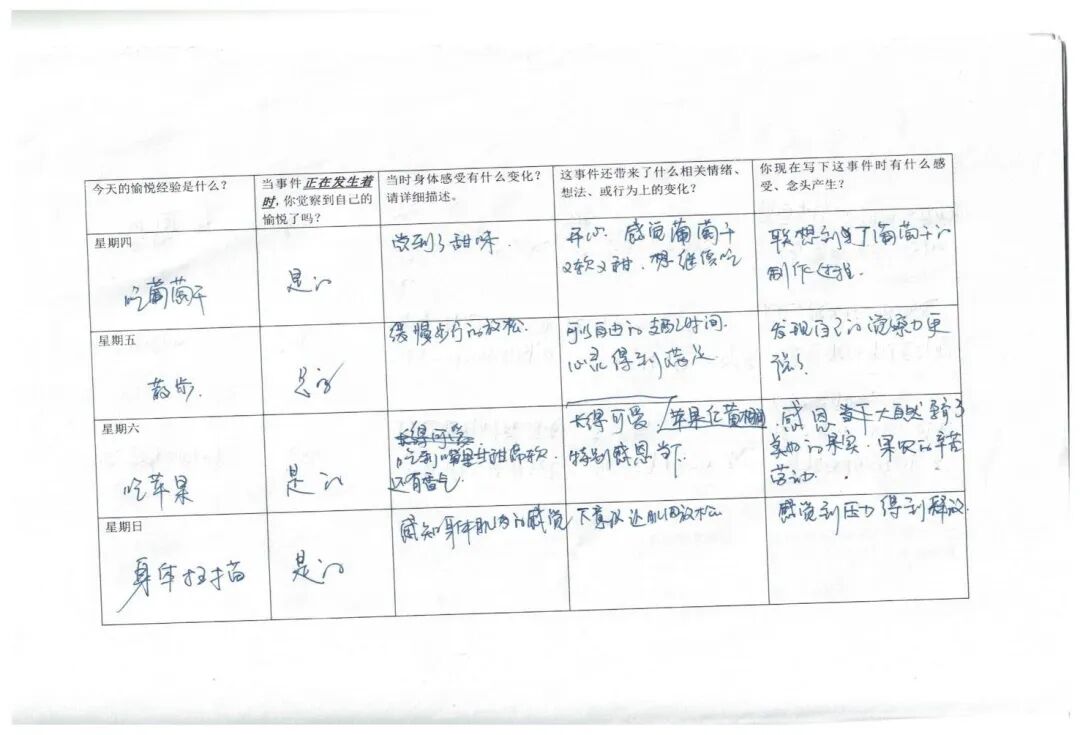 今天的愉悦经验是什么?
当事件正在发生着
时,你觉察到自己的
愉悦了吗?
当时身体感受有什么变化?
请详细描述。
这事件还带来了什么相关情绪、
想法、或行为上的变化?
你现在写下这事件时有什么感
受、念头产生?
星期四
吃葡萄干
是的
尝到了甜味
开心. 感觉葡萄干
又软又甜.想继续吃
联想到了葡萄干的
制作过程.
星期五
散步.
是的
缓慢步行的放松.
可以自由的支配时间.
心灵得到满足
发现自己的觉察力更
强了
星期六
吃苹果
是的
长得可爱.
吃到嘴里甘甜绵软.
还有香气.
长得可爱.
特别感恩当下.
感恩 大自然
美好的果实.果农的辛苦
劳动.
星期日
身体扫描
是的
感知身体肌肉的感觉
下意识让肌肉放松
感觉到压力得到释放.